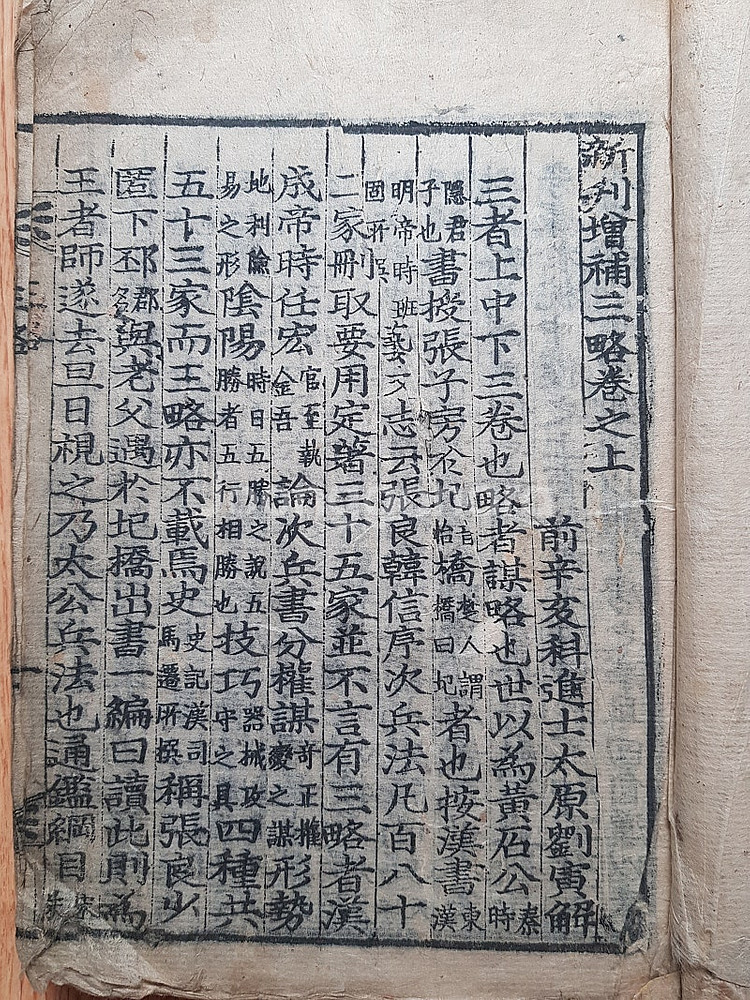 新刋增補三略卷之上
前辛亥科進士太原劉寅解
三者上中下三卷也略者謀略也世以為黃石公秦時
隱君子也書授張子房扵圯音怡橋楚人謂橋曰圯者也按漢書東漢
明帝時班固所藝文志云張良韓信序次兵法凡百八十
二家刪取要用定著三十五家並不言有三略者漢
成帝時任宏官至執金吾論次兵書分權謀奇正權變之謀形勢
地利險易之形陰陽時日五勝之說五勝者五行相勝也技巧器械攻守之具四種共
五十三家而三略亦不載焉史史記漢司馬遷所撰稱張良少
匿下邳郡名與老父遇扵圯橋出書一編曰讀此則為
王者師遂去旦日視之乃太公兵法也通鑑綱目宋朱